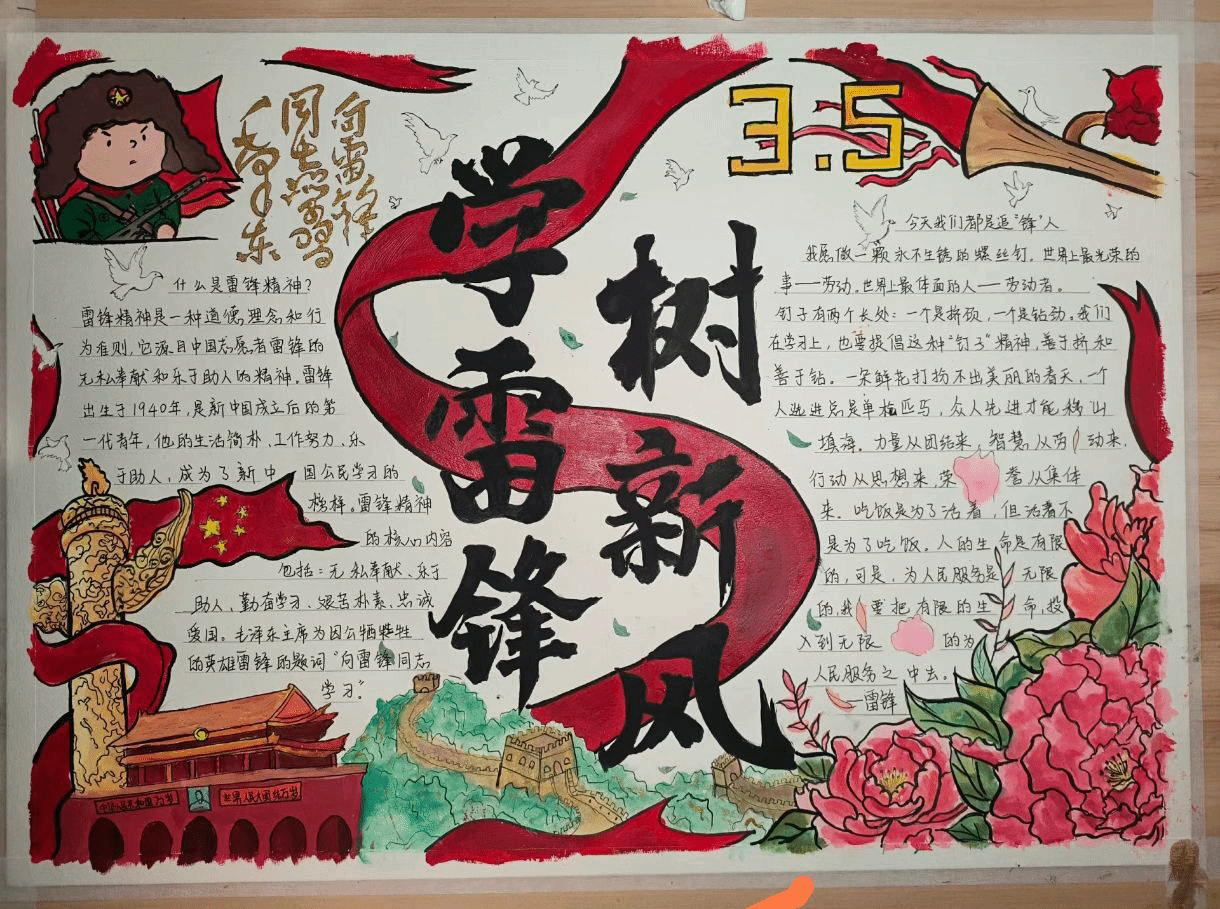 向雷锋
同志学习
毛泽东
学雷锋
树新风
3.5
什么是雷锋精神?
雷锋精神是一种道德理念和行
为准则,它源自中国志愿者雷锋的
无私奉献和乐于助人的精神。雷锋
出生于1940年,是新中国成立后的第
一代青年,他的生活简朴、工作努力、乐
于助人,成为了新中国公民学习的
榜样。雷锋精神
的核心内容
包括:无私奉献、乐于
助人、勤奋学习、艰苦朴素、忠诚
爱国。毛泽东主席为因公牺牲
的英雄雷锋的题词“向雷锋同志
学习”
今天我们都是追“锋”人
我愿做一颗永不生锈的螺丝钉。世界上最光荣的
事——劳动。世界上最体面的人——劳动者。
钉子有两个长处:一个是挤硕,一个是钻劲。我们
在学习上,也要提倡这种“钉子”精神,善于挤和
善于钻。一朵鲜花打扮不出美丽的春天,一个
人先进总是单枪匹马,众人先进才能移山
填海。力量从团结来,智慧从劳动来,
行动从思想来,荣誉从集体
来。吃饭是为了活着,但活着不
是为了吃饭。人的生命是有限
的,可是,为人民服务是无限
的,我要把有限的生命,投
入到无限的为
人民服务之中去。
—雷锋
中华人民共和国万岁
世界人民大团结万岁